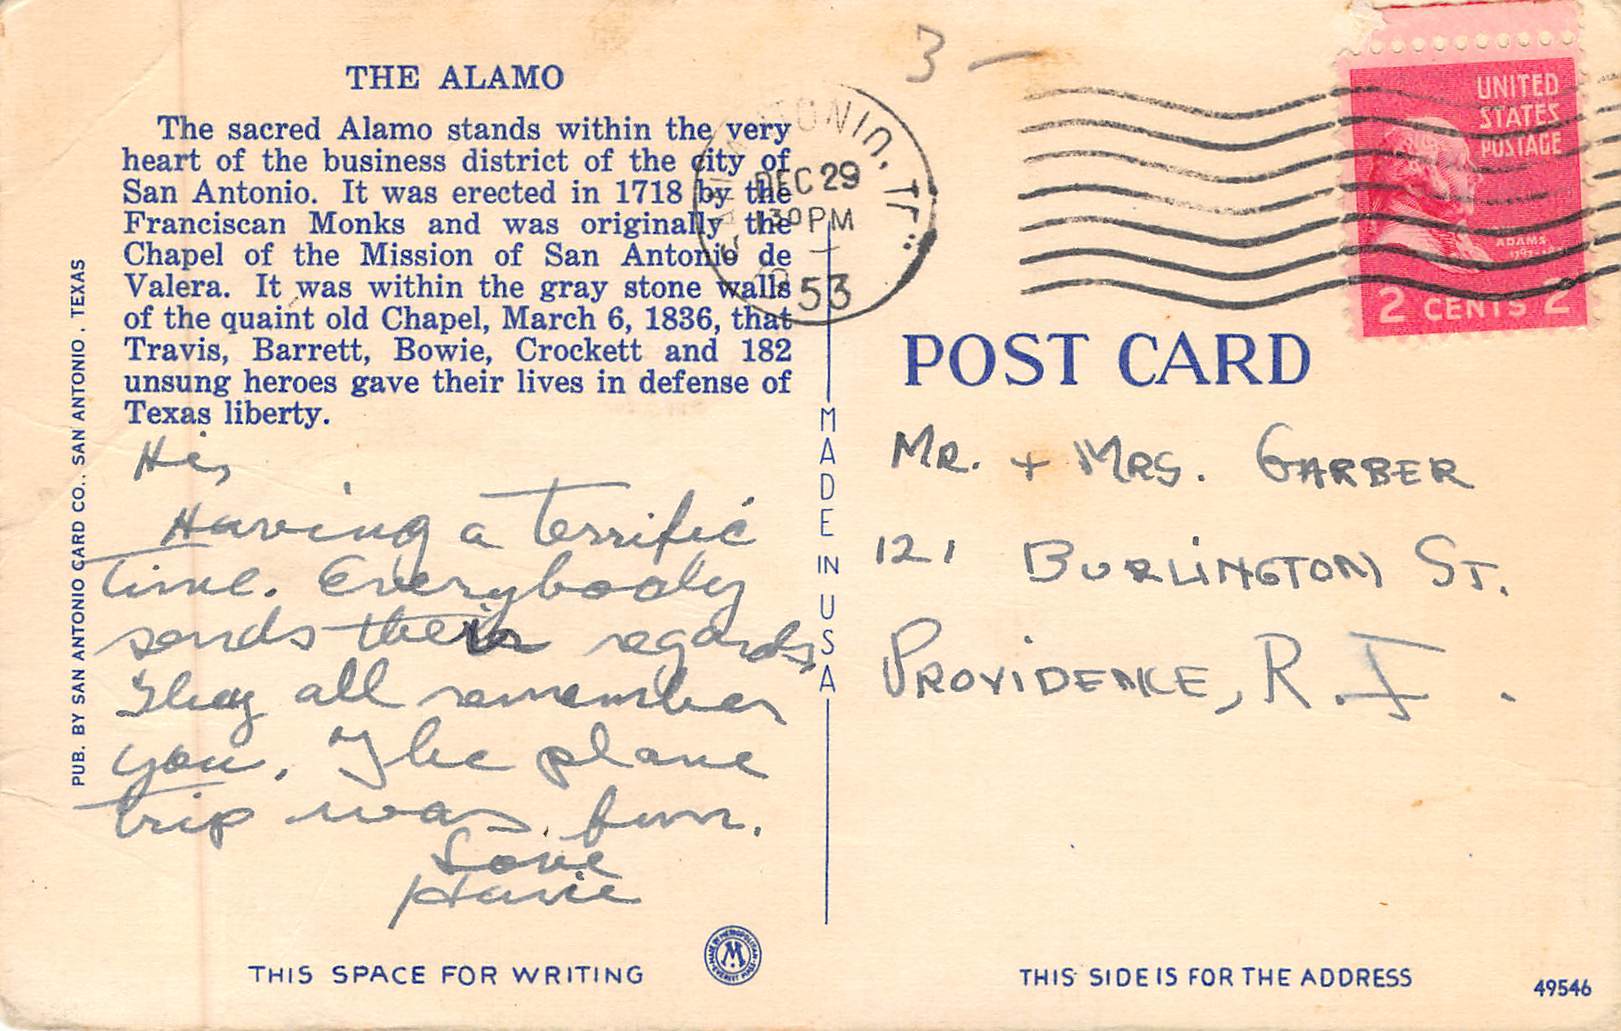 3 —
THE ALAMO
The sacred Alamo stands within the very
heart of the business district of the city of
San Antonio. It was erected in 1718 by the
Franciscan Monks and was originally the
Chapel of the Mission of San Antonio de
Valera. It was within the gray stone walls
of the quaint old Chapel, March 6, 1836, that
Travis, Barrett, Bowie, Crockett and 182
unsung heroes gave their lives in defense of
Texas liberty.
PUB. BY SAN ANTONIO CARD CO., SAN ANTONIO, TEXAS
Hi,
Having a terrific
time. Everybody
sends their regards,
They all remember
you. The plane
trip was fun.
Love
THIS SPACE FOR WRITING
MADE IN METROPOLITAN
M
EVERETT MASS
MADE IN USA
ANTONIO,
DEC 29
130 PM
53
UNITED
STATES
POSTAGE
ADAMS
2 CENTS 2
POST CARD
MR. + MRS. GARBER
121 BURLINGTON ST.
PROVIDENCE, R.I.
THIS SIDE IS FOR THE ADDRESS
49546